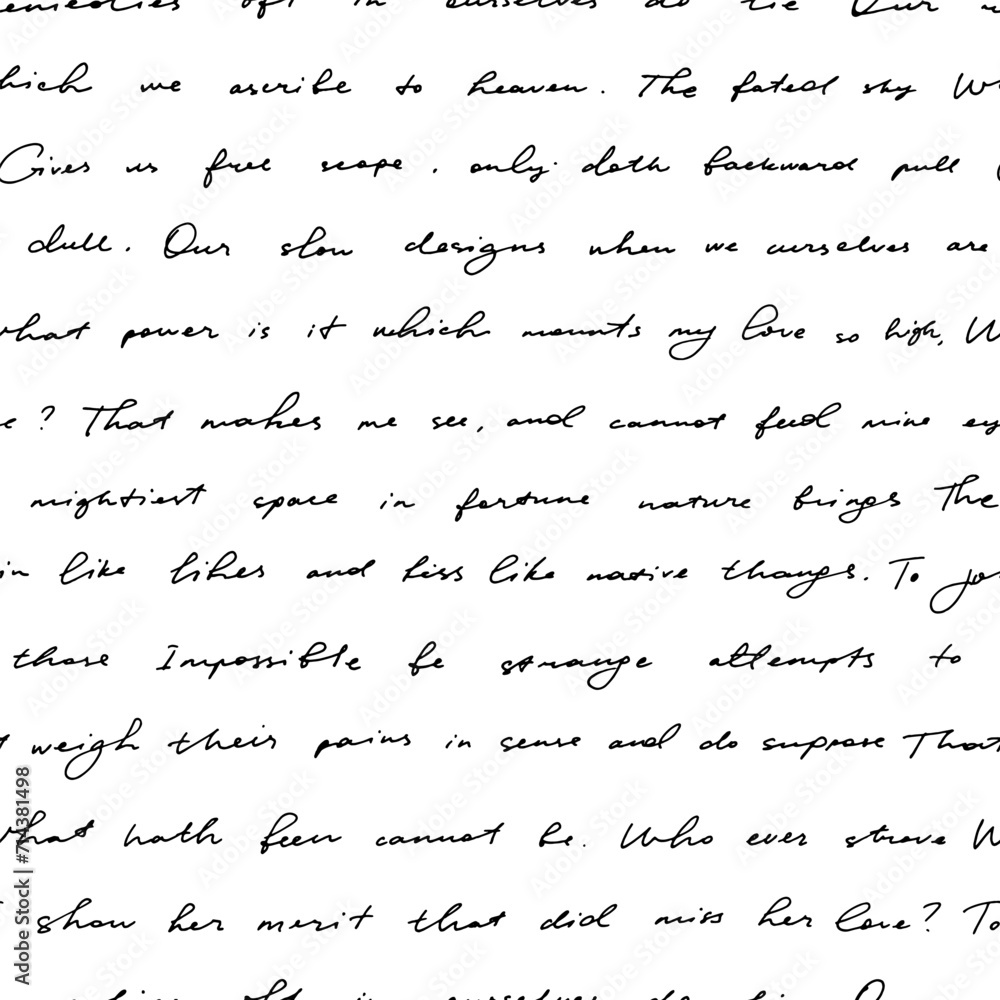 oft in ourselves do lie Our
we ascribe to heaven. The fated sky
Gives us free scope. only doth backward pull
dull. Our slow designs when we ourselves are
what power is it which mounts my love so high,
? That makes me see, and cannot feed mine
mightiest space in fortune nature brings The
in like likes and kiss like native thangs. To
those Impossible be strange attempts to
weigh their pains in sense and do suppose That
what hath been cannot be. Who ever strove
show her merit that did miss her love? To
oft in ourselves do
Adobe Stock | #714381498